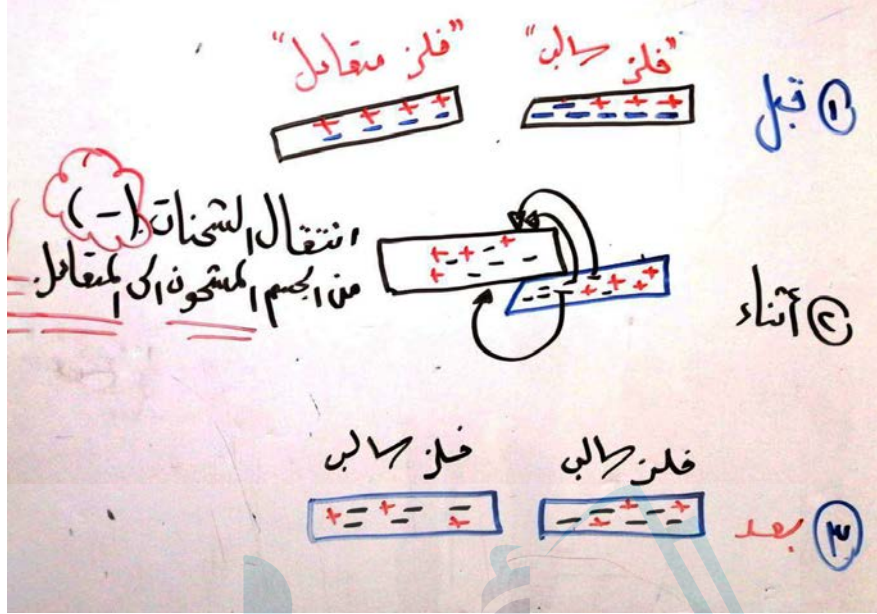 ① قبل
"فلز سالب"
"فلز متعادل"
② أثناء
انتقال الشحنات (-)
من الجسم المشحون الى المتعادل.
③ بعد
فلز سالب
فلز سالب